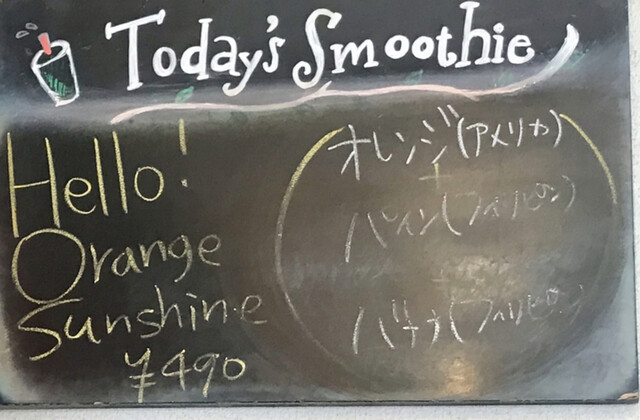 Today's Smoothie
Hello!
Orange
Sunshine
¥490
オレンジ(アメリカ)
+
パイン(フィリピン)
バナナ(フィリピン)